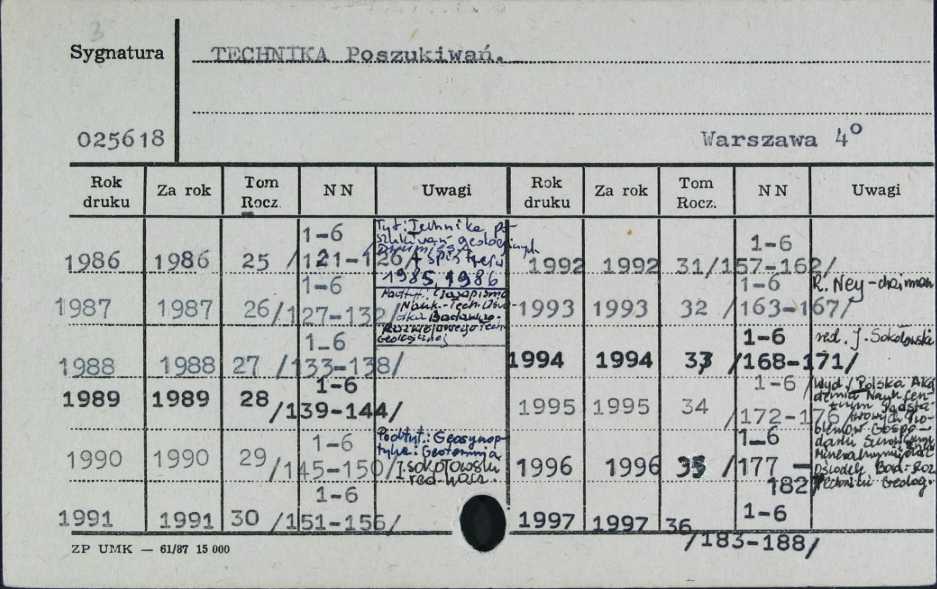 3
Sygnatura TECHNIKA Poszukiwań.
025618 Warszawa 4°
Rok druku Za rok Tom Rocz. N N Uwagi Rok druku Za rok Tom Rocz. N N Uwagi
1986 1986 25 1-6 /121-126/
Tyt: Technika po-
szukiwań geologicznych
+ spis treści
1985, 1986
1987 1987 26 1-6 /127-132/
Nauk.-Tech.
Geologicznej
1988 1988 27 1-6 /133-138/
1989 1989 28 1-6 /139-144/
1990 1990 29 1-6 /145-150/
Podtyt.: Geosynop-
tyka i Geotermia
J. Sokołowski
red. nacz.
1991 1991 30 1-6 /151-156/
1992 1992 31 1-6 /157-162/
1993 1993 32 1-6 /163-167/
R. Ney-chairman
1994 1994 33 1-6 /168-171/
red. J. Sokołowski
1995 1995 34 1-6 /172-176/
Wyd. Polska Aka
demia Nauk Cen-
trum Podsta-
wowych Pro-
blemów Gospo-
darki Surowcami
Mineralnymi
Ośrodek Bad.-Roz
Techniki Geolog.
1996 1996 35 1-6 /177 - 182/
1997 1997 36 1-6 /183-188/
ZP UMK — 61/87 15 000